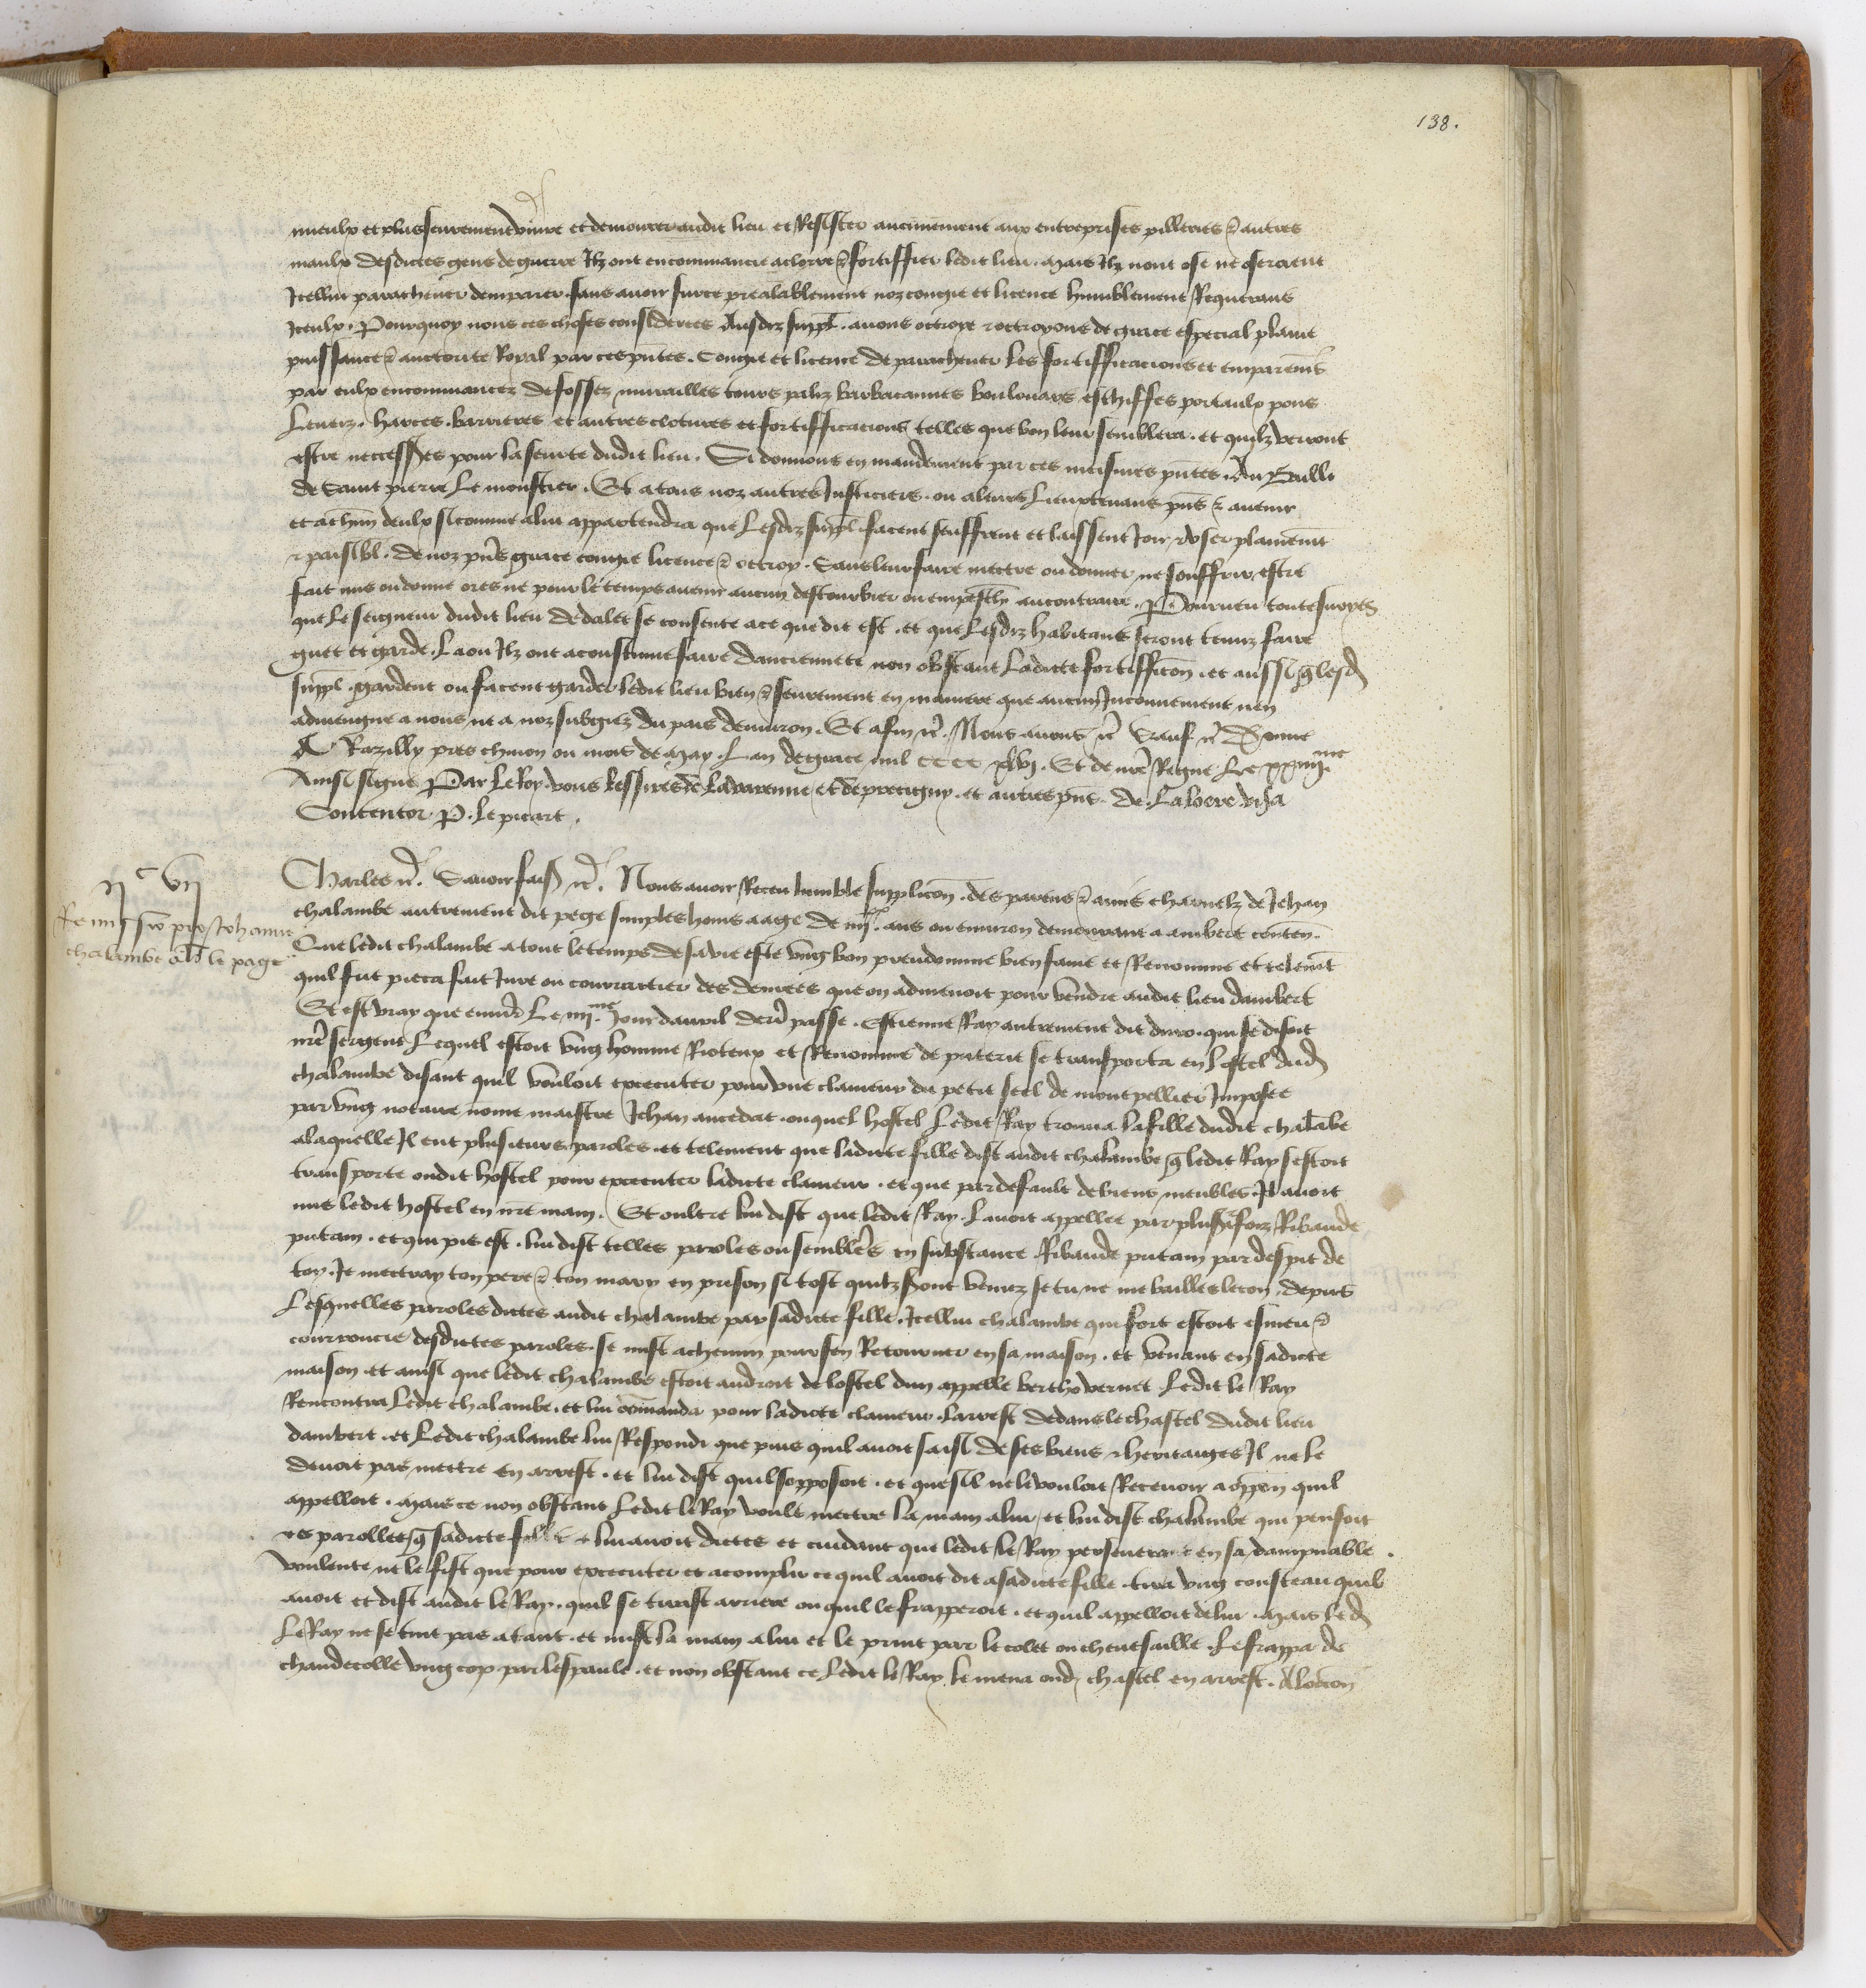 138.
mieulx et plus seurement vivre et demourer audit lieu et Resister aucunement aux entreprises pilleries & autres
maulx desdictes gens de guerre Ilz ont encommancie a clorre & fortiffier ledit lieu. mais Ilz nont ose ne oseroient
Icellui parachever demparer sans avoir sur ce prealablement noz congie et licence humblement Requerans
Iceulx. Pourquoy nous ces choses considerees Ausdiz suppl. avons octroye & octroyons de grace especial plaine
puissance & auctorite Royal par ces pntes. Congie et licence de parachever les fortifficacions et emparemens
par eulx encommancez de fossez murailles tours paliz barbacannes boulouars eschiffes portaulx pons
Leveiz. herces. barrieres et autres clotures et fortifficacions telles que bon leur semblera. et quilz verront
estre necessres pour la seurte dudit lieu. Si donnons en mandement par ces mesmes pntes. Au Bailli
de saint pierre Le monstier. Et a tous noz autres Justiciers. ou a leurs Lieuxtenans pns & avenir
et a chun deulx si comme a lui appartendra que Lesdiz suppl. facent seuffrent et laissent Joir & user plainemt
& paisibl. de noz pns grace congie licence & octroy. Sans leur faire mectre ou donner ne souffrir estre
fait mis ou donne ores ne pour le temps avenir aucun destourbier ou empeschmt au contraire. Pourveu toutesvoyes
que Le seigneur dudit lieu de dalet se consente a ce que dit est. et que Lesdiz habitans seront tenuz faire
guet et garde. La ou Ilz ont acoustume faire danciennete non obstant Ladicte fortifficon. et aussi q lesd
suppl. gardent ou facent garder ledit lieu bien & seurement en maniere que aucun Inconvenient nen
adviengne a nous ne a noz subgiez du pais denviron. Et afin &c. Nous avons &c Sauf &c Donne
A Razilly pres chinon ou mois de may. Lan de grace mil cccc xlvj. Et de nre Regne Le xxiiijme
Ainsi signe Par Le Roy. vous les sires de La varenne et de precigny. et autres pns. De. Laloere visa
Contentor. P. le picart.
ijc vij
Remissio pro Johanne
chalambe als le page
Charles &c. Savoir fais &c. Nous avoir Receu lumble supplicon. des parens & amis charnelz de Jehan
chalambe autrement dit pege simples homs aage de iiijxx. ans ou environ demourant a ambert conten.
Que ledit chalambe a tout le temps de sa vie este ung bon preudomme bien fame et Renomme et telemt
quil fut pieca fait Jure ou courratier des denrees que on admenoit pour vendre audit lieu dambert
Et est vray que envir Le iiijme Jour davril derr passe. Estienne Ray autrement dit duro. qui se disoit
nre sergent Lequel estoit ung homme Rioteux et Renomme de puterie se transporta en lostel dud
chalambe disant quil vouloit executer pour une clameur du petit seel de montpellier Imposee
par ung notaire nome maistre Jehan ancedat. ouquel hostel Ledit Ray trouva la fille dudit chalabe
a laquelle Il eut plusieurs paroles. et telement que ladicte fille dist audit chalambe q ledit Ray sestoit
transporte oudit hostel pour executer ladicte clameur. et que par default de biens meubles Il avoit
mis ledit hostel en nre main. Et oultre lui dist que ledit Ray. Lavoit appellee par plusrs foiz Ribaude
putain. et qui pis est. lui dist telles paroles ou semblables en substance Ribaude putain par despit de
toy. Je mectray ton pere & ton mary en prison si tost quilz sont venuz se tu ne me bailles lecon. depuis
Lesquelles paroles dictes audit chalambe par sadicte fille. Icellui chalambe qui fort estoit esmeu &
courroucie desdictes paroles. se mist a chemin pour sen Retourner en sa maison. et venant en sadicte
maison et ainsi que ledit chalambe estoit androit de lostel dun appelle bertho vernet Ledit le Ray
Rencontra Ledit chalambe. et lui commanda pour ladicte clameur. larrest dedans le chastel dudit lieu
dambert. et Ledit chalambe lui Respondi que puis quil avoit saisi de ses biens & heritaiges Il ne le
devoit pas mettre en arrest. et lui dist quil sopposoit. et que sil ne le vouloit Recevoir a oppon quil
appelloit. mais ce non obstant Ledit le Ray voult mectre la main a lui et lui dist chalambe qui pensoit
es parolles q sadicte fille lui avoit dictes et cuidant que ledit le Ray perseverast en sa dampnable
voulente ne le fist que pour executer et acomplir ce quil avoit dit a sadicte fille. tira ung cousteau quil
avoit et dist audit le Ray. quil se tirast arriere ou quil le frapperoit. et quil appelloit de lui. mais led
Le Ray ne se tint pas a tant. et mist la main a lui et le print par le colet ou chevesaille. Le frappa de
chaudecolle ung cop par lespaule. et non obstant ce Ledit le Ray le mena oud chastel en arrest. A loccon